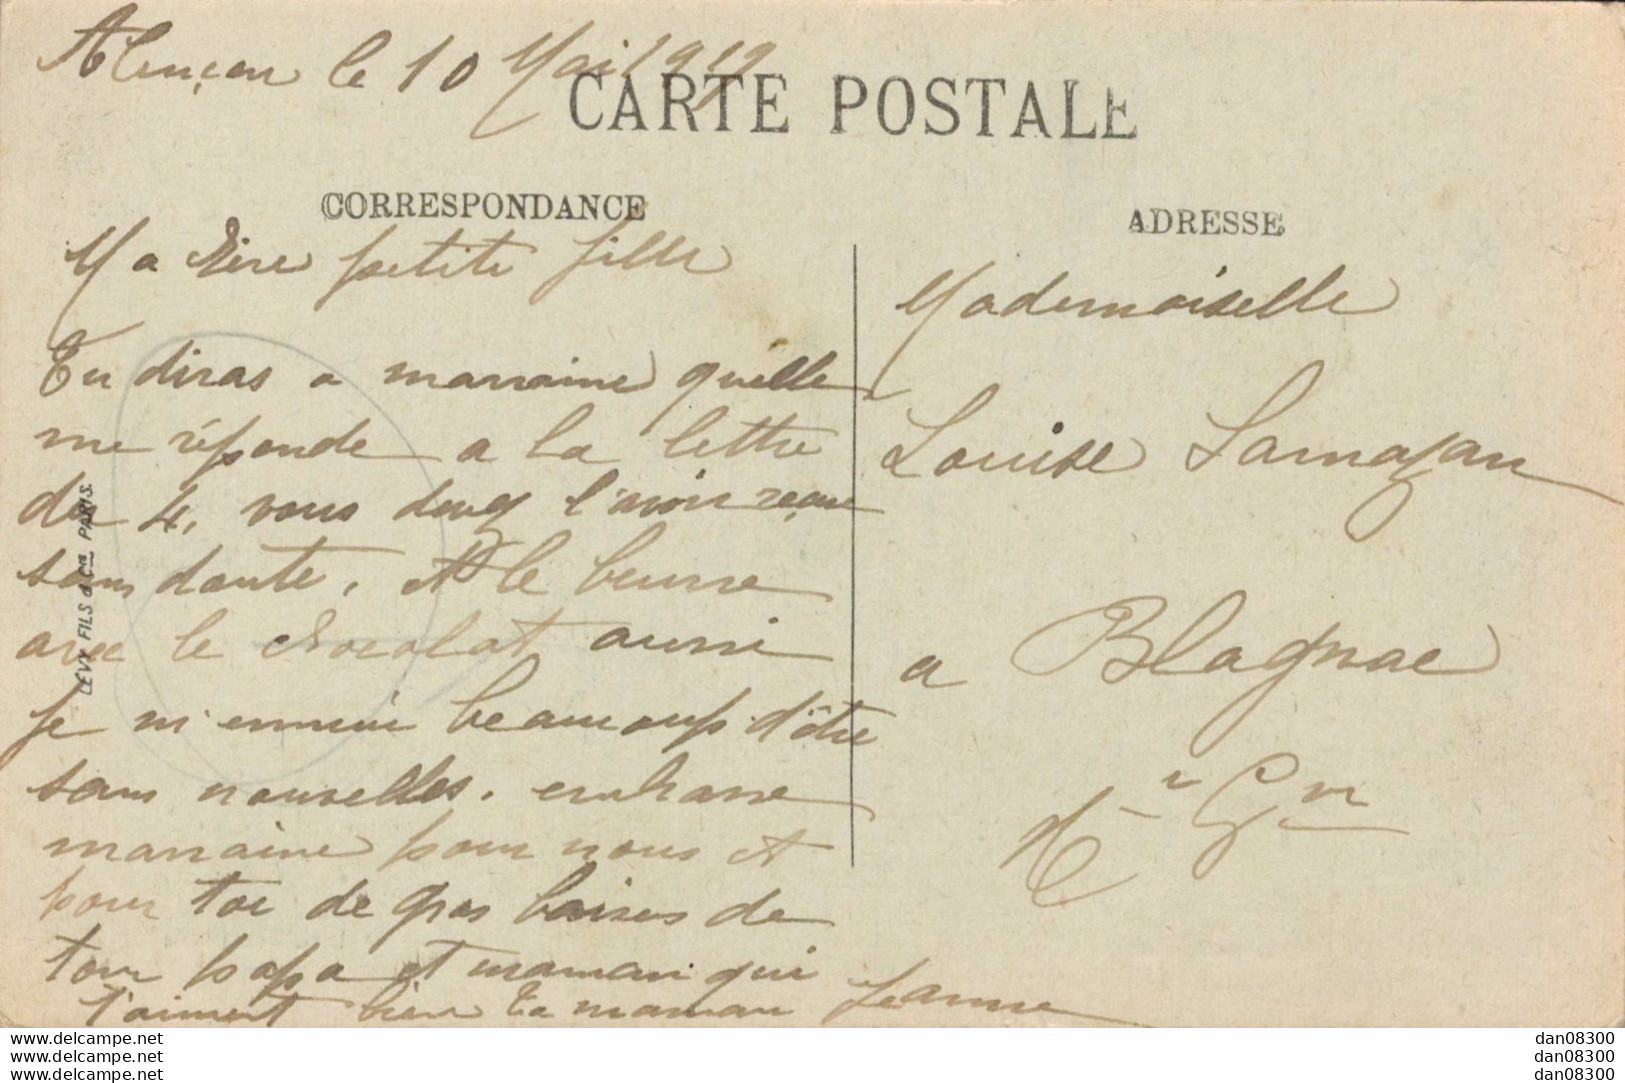 Alençon le 10 Mai 1919
CARTE POSTALE
CORRESPONDANCE
Ma petite fille
Tu diras a marraine qu'elle
me réponde a la lettre
du 4, vous devez l'avoir reçue
sans doute, et le beurre
avec le chocolat aussi
je m'ennuie beaucoup d'être
sans nouvelles. embrasse
marraine pour nous et
pour toi de gros baisers de
ton papa et maman qui
t'aiment bien Ta maman Jeanne
ADRESSE
Mademoiselle
Louise Lamazan
a Blagnac
Hte Gne
LEVY FILS & Cie PARIS.
www.delcampe.net
www.delcampe.net
www.delcampe.net
dan08300
dan08300
dan08300